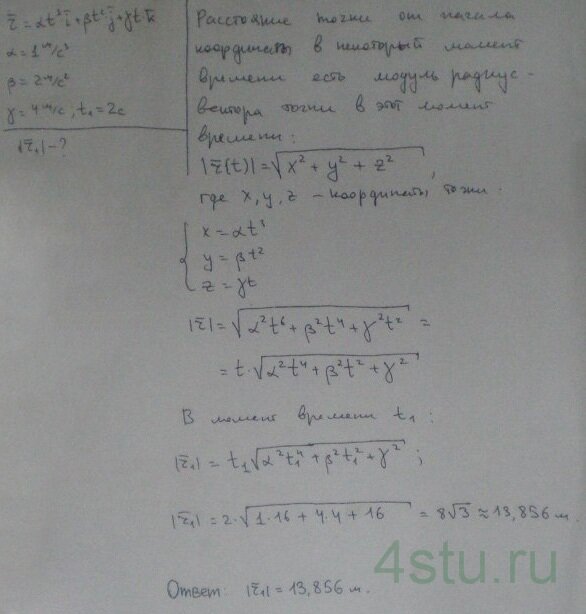 r̄ = αt³ī + βt²j̄ + γt k̄
α = 1 м/с³
β = 2 м/с²
γ = 4 м/с, t₁ = 2с
|r̄₁| - ?
Расстояние точки от начала
координаты в некоторый момент
времени есть модуль радиус-
вектора точки в этот момент
времени:
|r̄(t)| = √(x² + y² + z²),
где x, y, z – координаты точки.
{ x = αt³
y = βt²
z = γt
|r̄| = √(α²t⁶ + β²t⁴ + γ²t²) =
= t·√(α²t⁴ + β²t² + γ²)
В момент времени t₁:
|r̄₁| = t₁√(α²t₁⁴ + β²t₁² + γ²);
|r̄₁| = 2·√(1·16 + 4·4 + 16) = 8√3 ≈ 13,856 м.
4stu.ru
Ответ: |r̄₁| = 13,856 м.